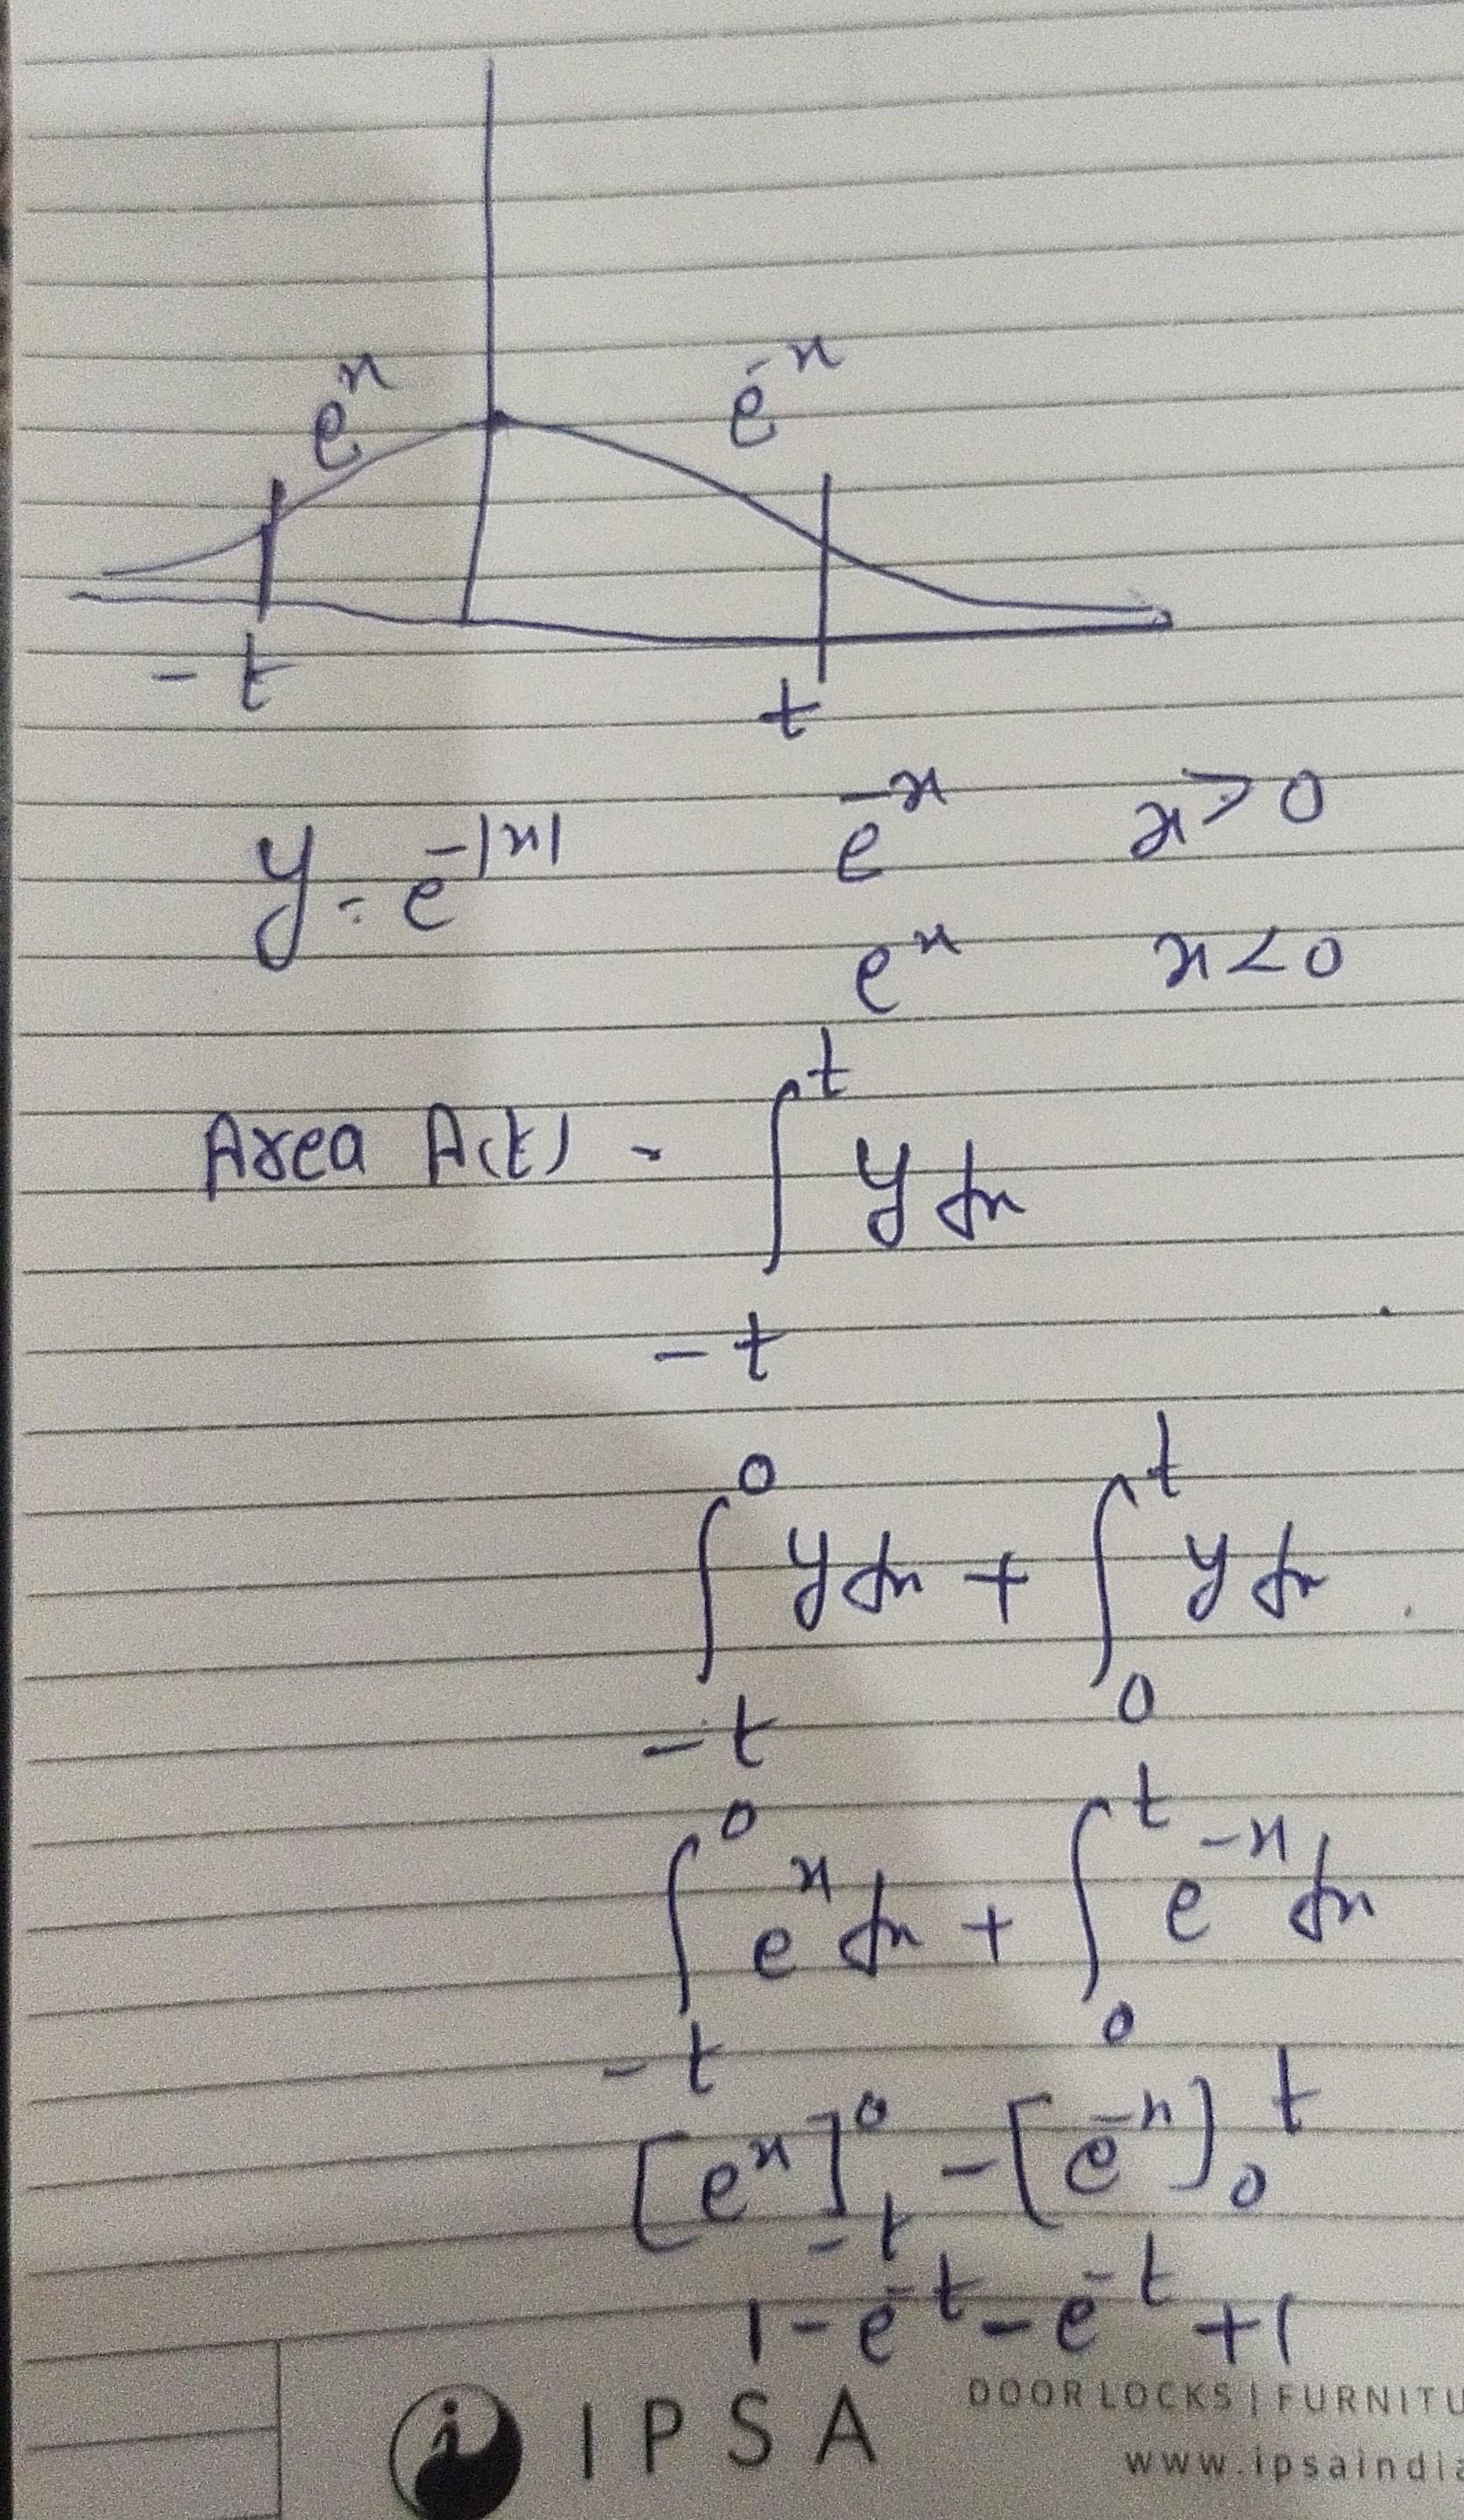 e^x e^-x
-t t
y = e^-|x| e^-x x>0
e^x x<0
Area A(t) = ∫_{-t}^{t} y dx
∫_{-t}^{0} y dx + ∫_{0}^{t} y dx
∫_{-t}^{0} e^x dx + ∫_{0}^{t} e^-x dx
[e^x]_{-t}^{0} - [e^-x]_{0}^{t}
1 - e^-t - e^-t + 1
IPSA DOOR LOCKS | FURNITU
www.ipsaindia